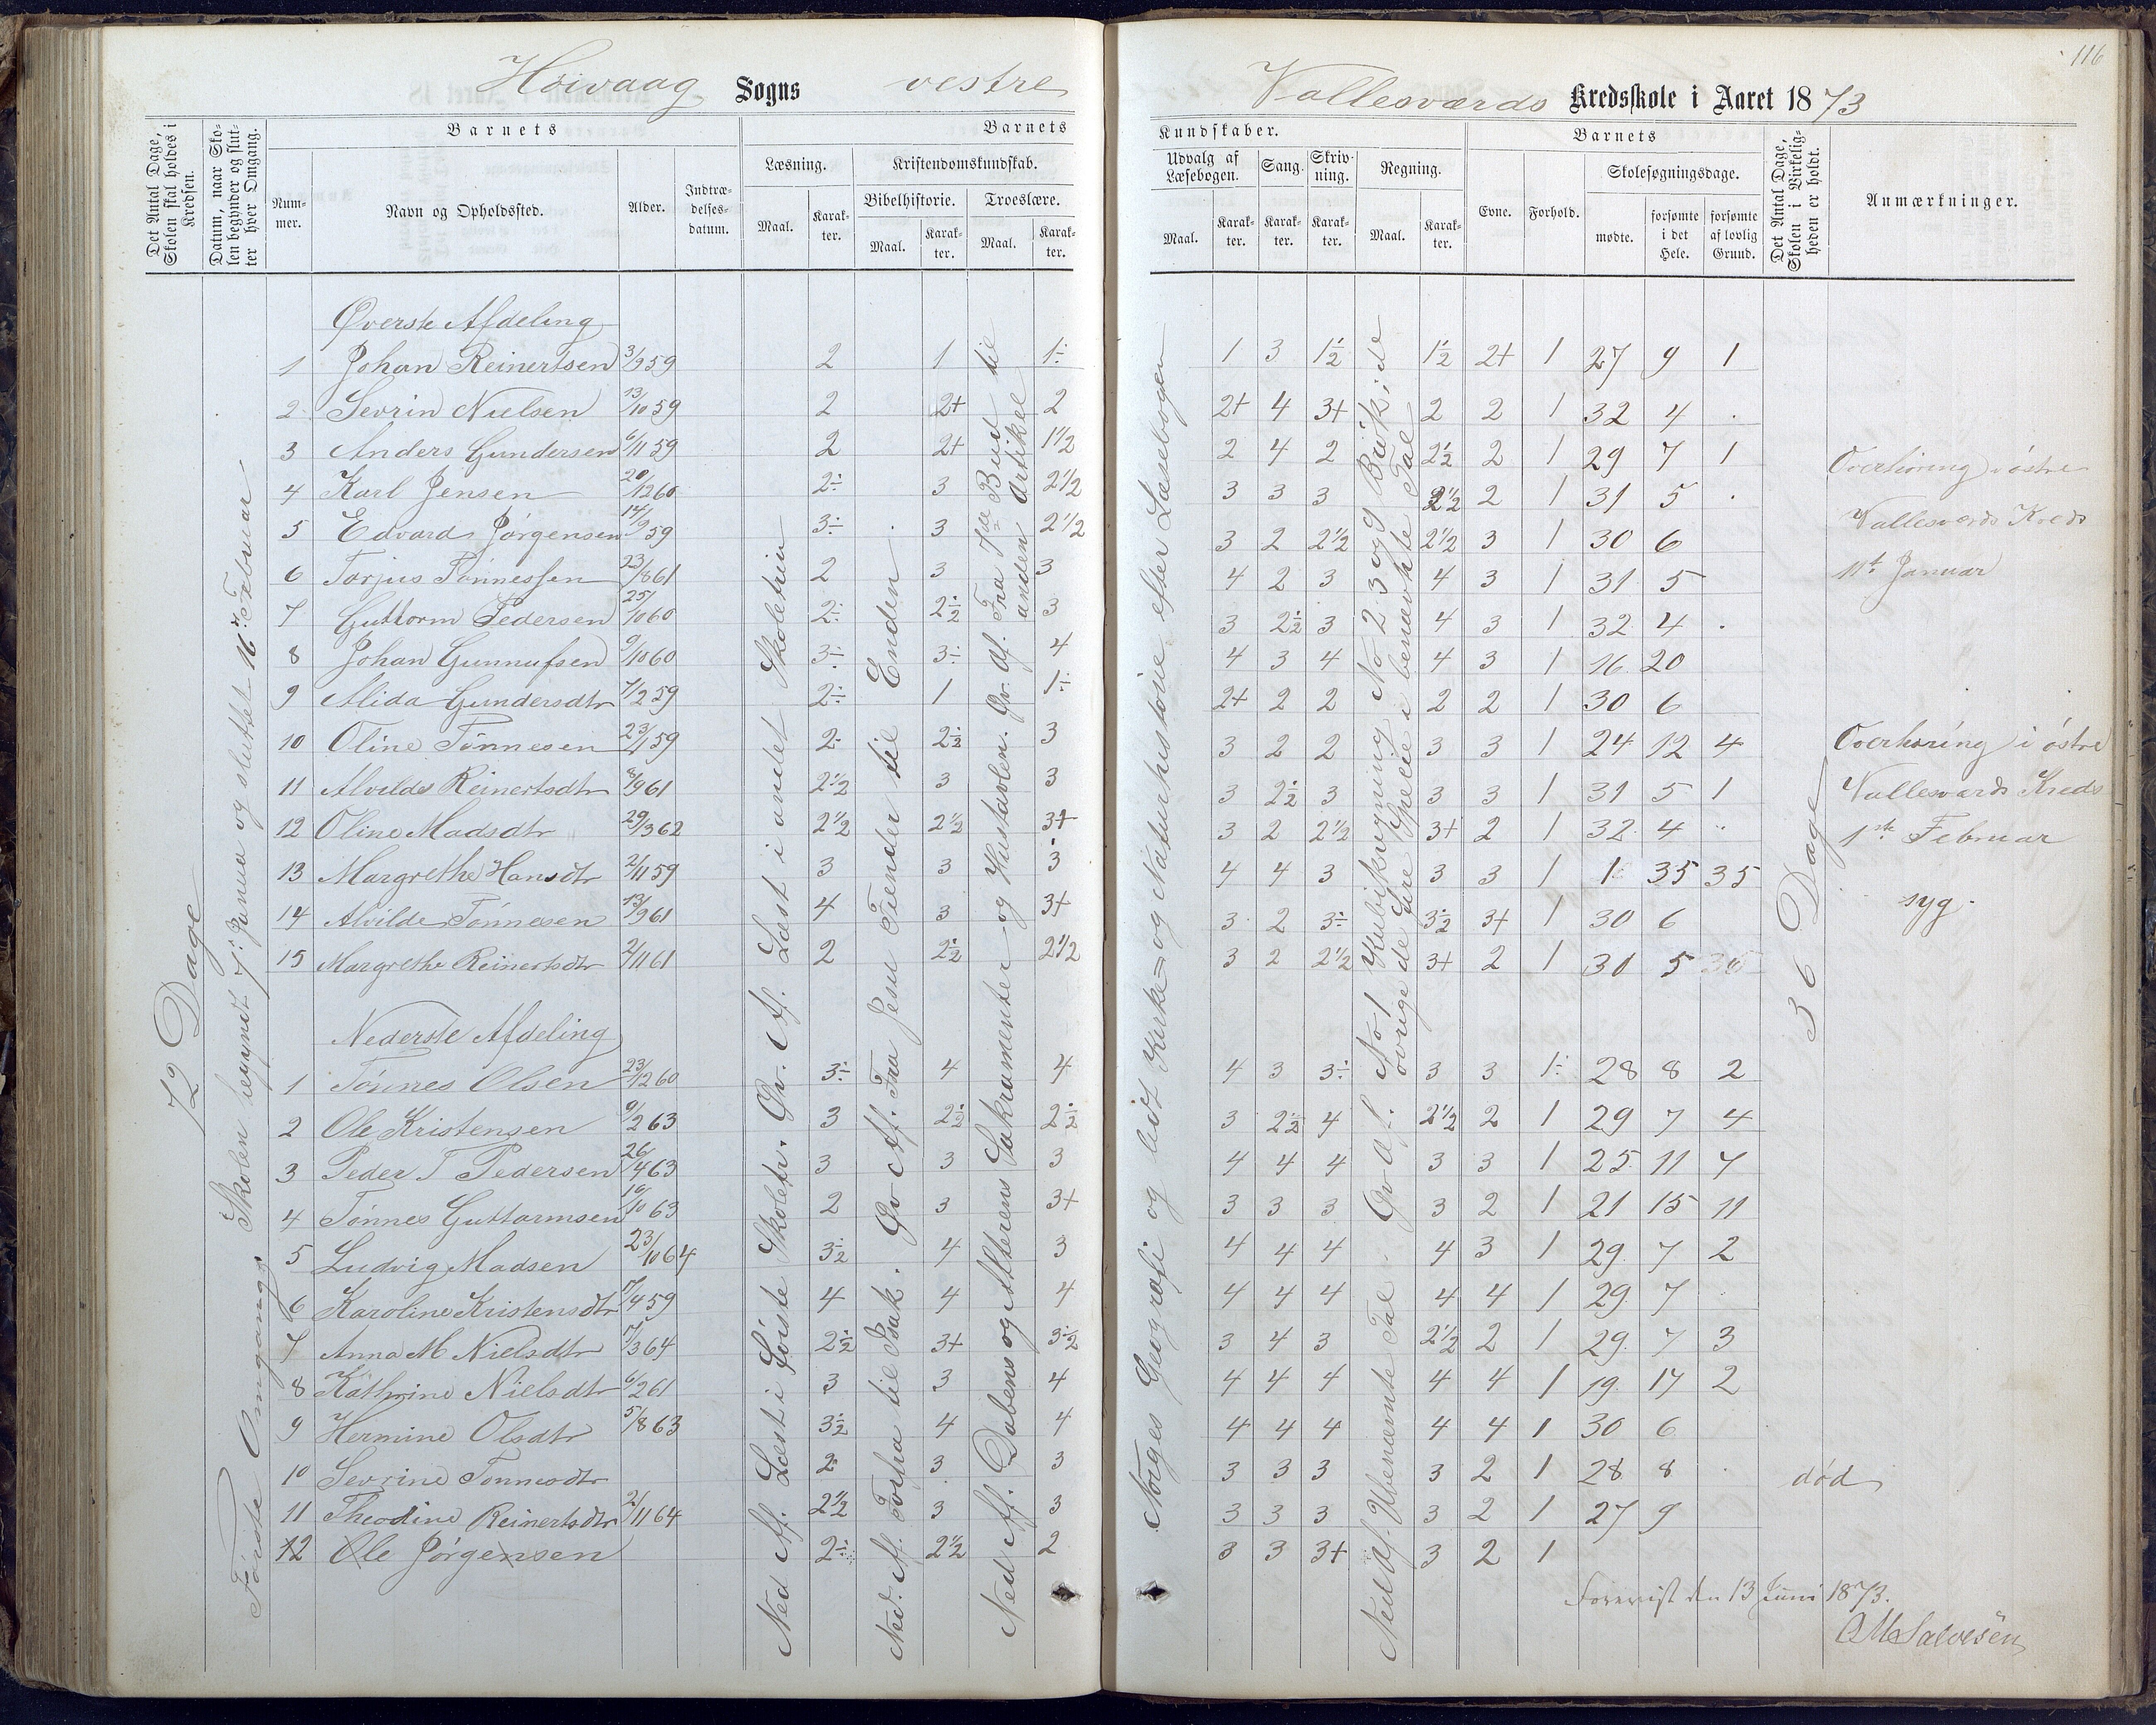 116
Høivaag Sogns vestre Vallesværds Kredsskole i Aaret 1873
Det Antal Dage, Skolen skal holdes i Kredsen.
Datum, naar Skolen begynder og slutter hver Omgang.
Barnets
Nummer.
Navn og Opholdssted.
Alder.
Indtrædelsesdatum.
Barnets
Kundskaber.
Læsning.
Maal.
Karakter.
Kristendomskundskab.
Bibelhistorie.
Maal.
Karakter.
Troeslære.
Maal.
Karakter.
Udvalg af Læsebogen.
Maal.
Karakter.
Sang.
Karakter.
Skrivning.
Karakter.
Regning.
Maal.
Karakter.
Barnets
Evne.
Forhold.
Skolesøgningsdage.
mødte.
forsømte i det Hele.
forsømte af lovlig Grund.
Det Antal Dage, Skolen i Virkeligheden er holdt.
Anmærkninger.
72 Dage
Første Omgang. Skolen begyndt 7de Janua og sluttet 16de Februar
Øverste Afdeling
1 Johan Reinertsen 3/9 59 2 1 1÷ 1 3 1½ 1½ 2+ 1 27 9 1
2 Sevrin Nielsen 13/10 59 2 2+ 2 2+ 4 3+ 2 2 1 32 4 .
3 Anders Gundersen 6/11 59 2 2+ 1½ 2 4 2 2½ 2 1 29 7 1
4 Karl Jensen 20/12 60 2÷ 3 2½ 3 3 3 2½ 2 1 31 5 .
5 Edvard Jørgensen 14/9 59 3÷ 3 2½ 3 2 2½ 2½ 3 1 30 6
6 Torjus Tønnessen 23/8 61 2 3 3 4 2 3 4 3 1 31 5
7 Guttorm Pedersen 25/10 60 2÷ 2½ 3 3 2½ 3 4 3 1 32 4 .
8 Johan Gunnufsen 9/10 60 3÷ 3÷ 4 4 3 4 4 3 1 16 20
9 Alida Gundersdtr 7/2 59 2÷ 1 1÷ 2+ 2 2 2 2 1 30 6
10 Oline Tønnesen 23/1 59 2÷ 2½ 3 3 2 2 3 3 1 24 12 4
11 Alvilde Reinertsdtr 8/9 61 2½ 3 3 3 2½ 3 3 3 1 31 5 1
12 Oline Madsdtr 29/3 62 2½ 2½ 3+ 3 2 2½ 3+ 2 1 32 4
13 Margrethe Hansdtr 2/11 59 3 3 3 4 4 3 3 3 1 1 35 35
14 Alvilde Tønnesen 13/9 61 4 3 3+ 3 2 3÷ 3½ 3+ 1 30 6
15 Margrethe Reinertsdtr 2/11 61 2 2½ 2½ 3 2 2½ 3+ 2 1 31 5
Nederste Afdeling
1 Tønnes Olsen 23/12 60 3÷ 4 4 4 3 3÷ 3 3 1÷ 28 8 2
2 Ole Kristensen 9/2 63 3 2½ 2½ 3 2½ 4 2½ 2 1 29 7 4
3 Peder T Pedersen 26/4 63 3 3 3 4 4 4 3 3 1 25 11 7
4 Tønnes Guttormsen 10/10 63 2 3 3+ 3 3 3 3 2 1 21 15 11
5 Ludvig Madsen 23/10 64 3½ 4 3 4 4 4 4 3 1 29 7 2
6 Karoline Kristensdtr 17/4 59 4 4 4 4 4 4 4 4 1 29 7
7 Anna M Nielsdtr 17/3 64 2½ 3+ 3½ 3 4 3 2½ 2 1 29 7 3
8 Kathrine Nielsdtr 6/2 61 3 3 4 4 4 4 4 4 1 19 17 2
9 Hermine Olsdtr 5/8 63 3½ 4 4 4 4 4 4 4 1 30 6
10 Sevrine Tønnesdtr 2 3 3 3 3 3 3 2 1 28 8 .
11 Theodine Reinertsdtr 2/11 64 2½ 3 3 3 3 3 3 2 1 27 9
12 Ole Jørgensen 2÷ 2½ 2 3 3 3+ 3 2 1
Ned Af. Læst i Første Skoletr. Øv. Af. Læst i andet Skoletrin
Ned. Af. Josefa til Isak. Øv Af. Fra Jesu Fiender til Enden.
Ned Af. Dabens og Alterens Sakramenter og Hustavlen. Øv. Af. Fra 7de Bud til anden Artikel
Norges Geografi og lidt Kirke- og Naturhistorie efter Læsebogen
Ned Af. Ubenævnte Tal. Øv Af. No 1 Kubikregning No 2 3 og 4 øvrige de fire Specie i benævnte Tal
36 Dage
Overhøring i østre
Vallesværds Kreds
11te Januar
Overhøring i østre
Vallesværds Kreds
1ste Februar
syg.
død
Forevist den 13 Juni 1873.
OMSalvesen